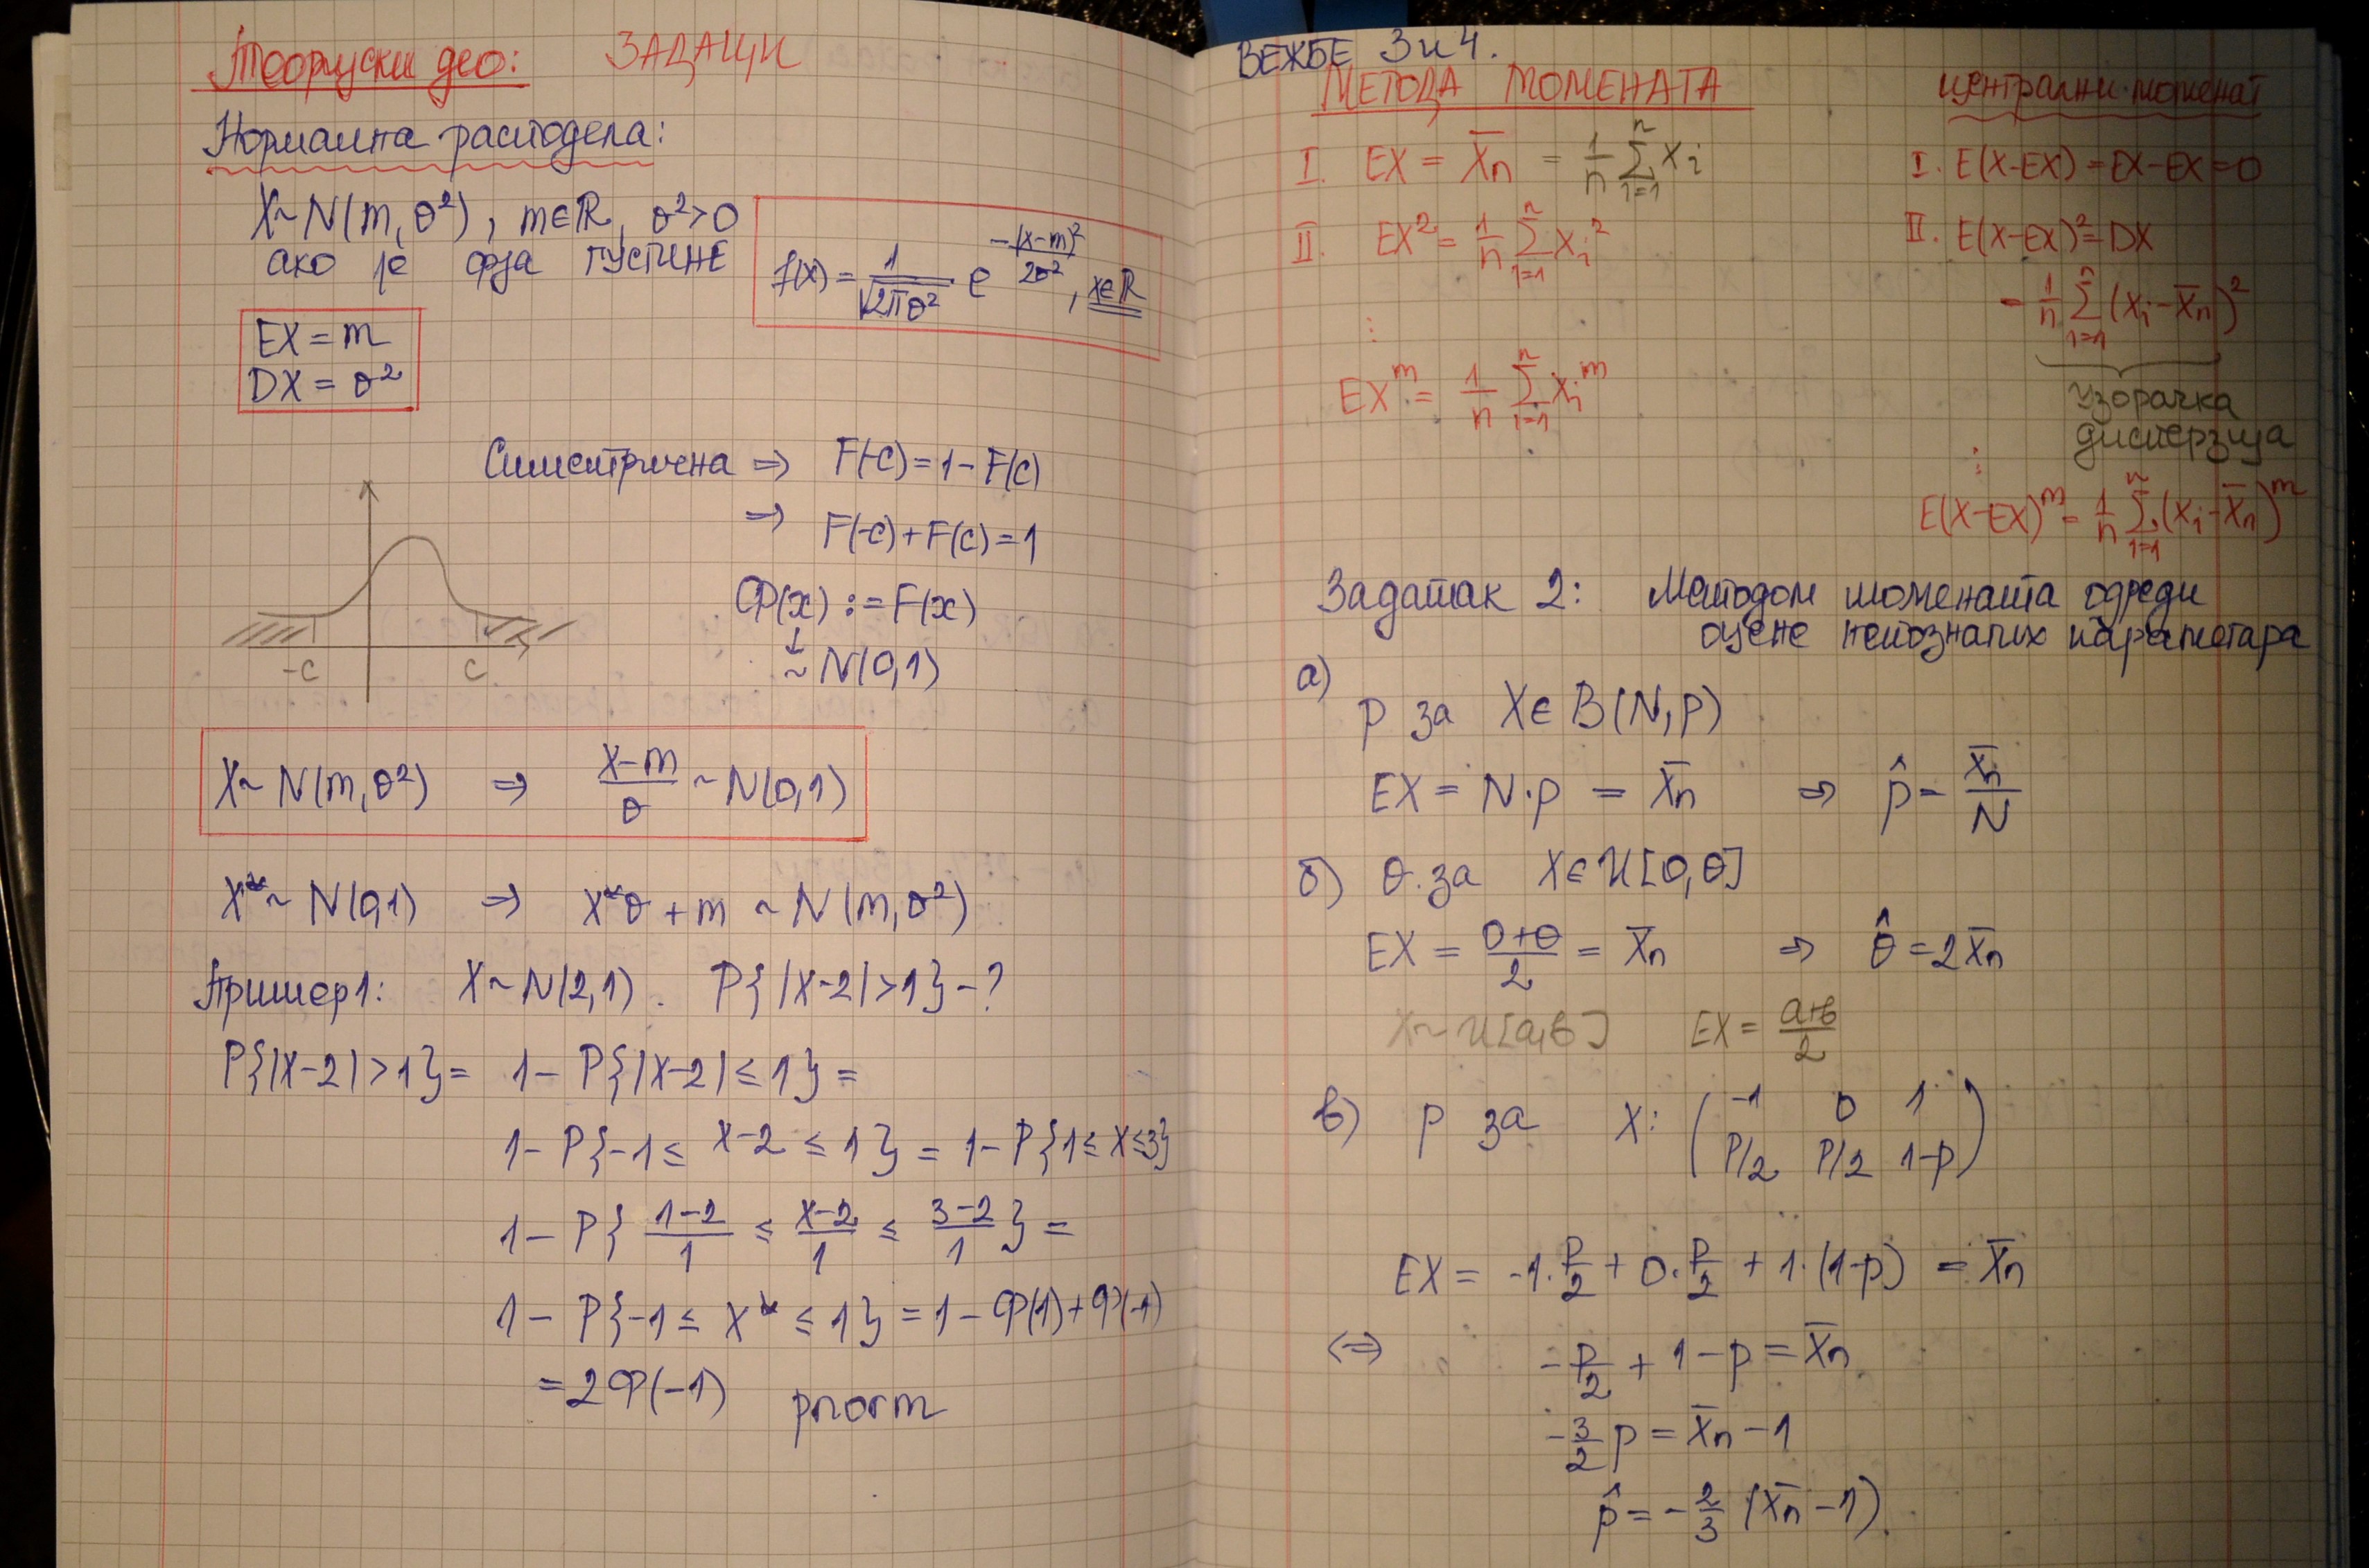 Теоријски део: ЗАДАЦИ
Нормална расподела:
X~N(m,σ²), m∈ℝ, σ²>0
ако је фја ГУСТИНЕ
f(x) = 1/√(2πσ²) e^(-(x-m)²/2σ²), x∈ℝ
EX = m
DX = σ²
Симетрична ⇒ F(-c) = 1 - F(c)
⇒ F(-c) + F(c) = 1
Φ(x) := F(x)
↓
~ N(0,1)
-c c
X~N(m,σ²) ⇒ (X-m)/σ ~ N(0,1)
X*~N(0,1) ⇒ X*σ + m ~ N(m,σ²)
Пример1: X~N(2,1). P{|X-2|>1} - ?
P{|X-2|>1} = 1 - P{|X-2| ≤ 1} =
1 - P{-1 ≤ X-2 ≤ 1} = 1 - P{1 ≤ X ≤ 3}
1 - P{(1-2)/1 ≤ (X-2)/1 ≤ (3-2)/1} =
1 - P{-1 ≤ X* ≤ 1} = 1 - Φ(1) + Φ(-1)
= 2Φ(-1) pnorm
ВЕЖБЕ 3 и 4.
МЕТОДА МОМЕНАТА
I. EX = X̄n = 1/n Σ_{i=1}^{n} Xi
II. EX² = 1/n Σ_{i=1}^{n} Xi²
⋮
EX^m = 1/n Σ_{i=1}^{n} Xi^m
централни момент
I. E(X-EX) = EX-EX = 0
II. E(X-EX)² = DX
= 1/n Σ_{i=1}^{n} (Xi - X̄n)²
узорачка
дисперзија
⋮
E(X-EX)^m = 1/n Σ_{i=1}^{n} (Xi - X̄n)^m
Задатак 2: Методом момената одреди
оцене непознатих параметара
а)
p за X∈B(N,p)
EX = N·p = X̄n ⇒ p̂ = X̄n/N
б) θ за X∈U[0,θ]
EX = (0+θ)/2 = X̄n ⇒ θ̂ = 2X̄n
X~U[a,b] EX = (a+b)/2
в) p за X: ( -1 0 1
p/2 p/2 1-p )
EX = -1·p/2 + 0·p/2 + 1·(1-p) = X̄n
⇔ -p/2 + 1 - p = X̄n
-3/2 p = X̄n - 1
p̂ = -2/3 (X̄n - 1).